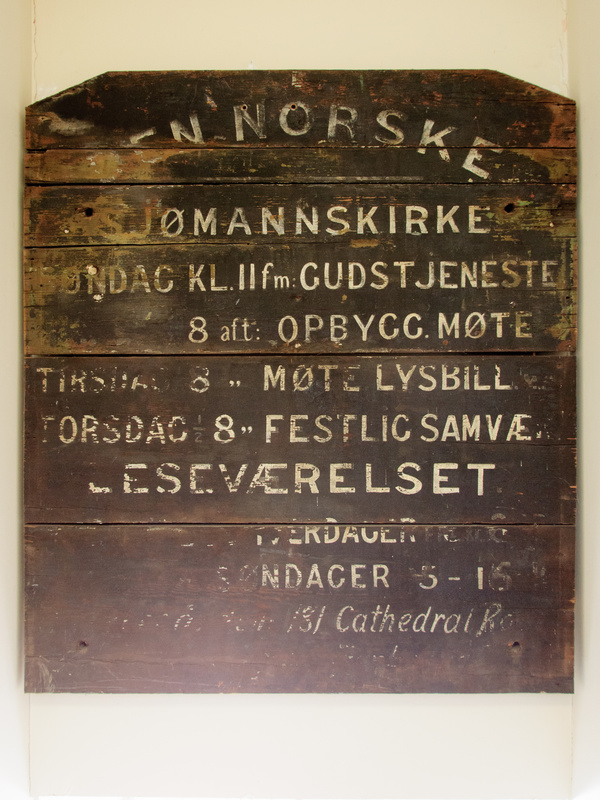 DEN NORSKE
SJØMANNSKIRKE
SØNDAG KL. 11 fm: GUDSTJENESTE
8 aft: OPBYGG. MØTE
TIRSDAG 8 „ MØTE LYSBILL.
TORSDAG ½ 8 „ FESTLIG SAMVÆR
LESEVÆRELSET
HVERDAGER
SØNDAGER 5-
131 Cathedral